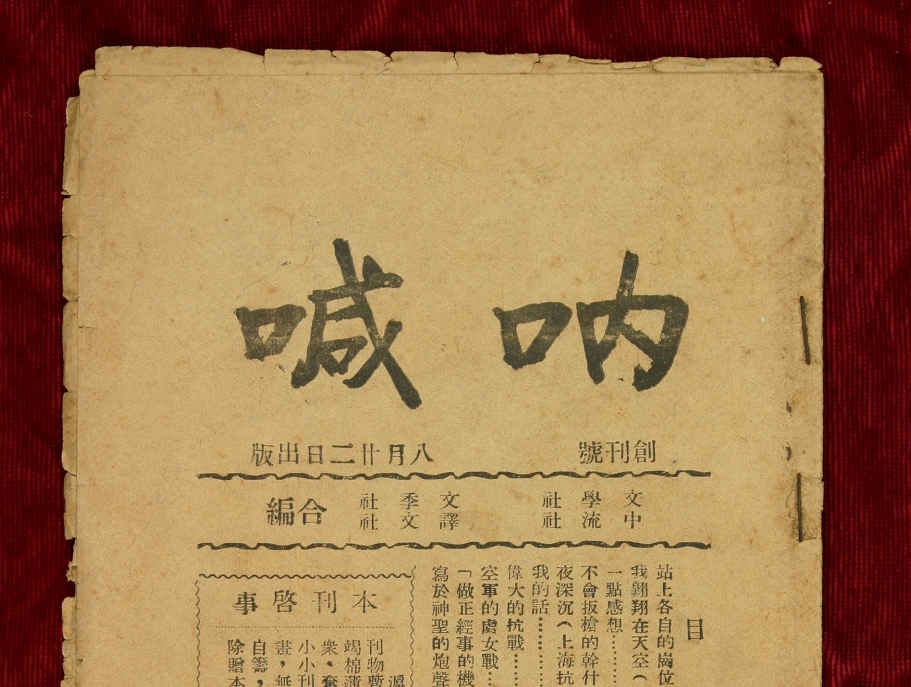 吶喊
創刊號 八月廿二日出版
文學社 文季社
中流社 譯文社
合編
目
站上各自的崗位
我翱翔在天空(
一點感想………
不會扳槍的幹什
夜深沉(上海抗
我的話………
偉大的抗戰……
空軍的處女戰…
「做正經事的機
寫於神聖的炮聲
本刊啓事
刊物暫
竭棉薄
衆,奮
小小刊
畫,無
自籌,
除贈本